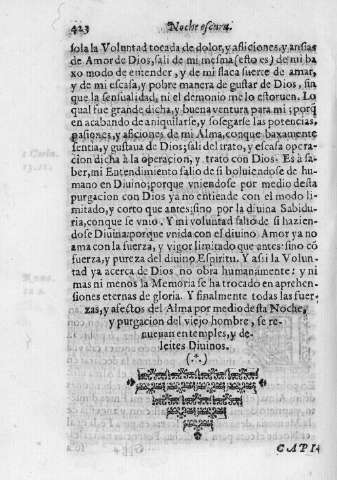 423 Noche escura.
sola la Voluntad tocada de dolor, y aflicciones, y ansias
de Amor de Dios, sali de mi mesma (esto es) de mi ba
xo modo de entender, y de mi flaca suerte de amar,
y de mi escasa, y pobre manera de gustar de Dios, sin
que la sensualidad, ni el demonio me lo estoruen. Lo
qual fue grande dicha, y buena ventura para mi; porq̃
en acabando de aniquilarse, y sosegarse las potencias,
pasiones, y aficiones de mi Alma, conque baxamente
sentia, y gustaua de Dios; sali del trato, y escasa opera-
cion dicha à la operacion, y trato con Dios. Es à sa-
ber, mi Entendimiento salio de si boluiendose de hu-
mano en Diuino; porque vniendose por medio desta
purgacion con Dios ya no entiende con el modo li-
mitado, y corto que antes; sino por la diuina Sabidu-
ria, conque se vnio. Y mi voluntad salto de si hazien-
dose Diuina: porque vnida con el diuino Amor ya no
ama con la fuerza, y vigor limitado que antes: sino cõ
fuerza, y pureza del diuino Espiritu. Y asii la Volun-
tad ya acerca de Dios no obra humanamente: y ni
mas ni menos la Memoria se ha trocado en aprehen-
siones eternas de gloria. Y finalmente todas las fuer-
zas, y afectos del Alma por medio desta Noche,
y purgacion del viejo hombre, se re-
nueuan en temples, y de-
leites Diuinos.
(.*.)
CAPI-